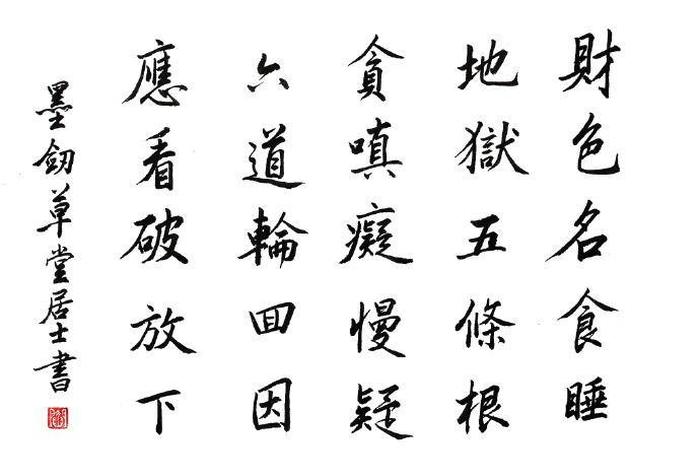 財色名食睡
地獄五條根
貪嗔癡慢疑
六道輪回因
應看破放下
墨劒草堂居士書